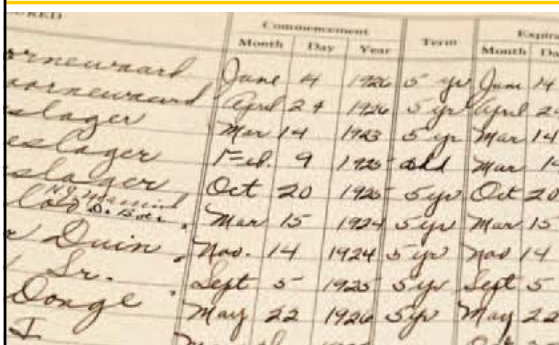 URED Commencement Expira
Month Day Year Term Month Da
ornewnard June 4 1926 5 yr June 14
oornewnard April 24 1926 5 yr April 2
slager Mar 14 1923 5 yr Mar 14
eslager Feb. 9 1925 add Mar 14
slager Oct 20 1925 5 yr Oct 20
Mar 15 1924 5 yr Mar 15
r Duin Nov. 14 1924 5 yr Nov 14
Sr. Sept 5 1925 5 yr Sept 5
Donge May 22 1926 5 yr May 22